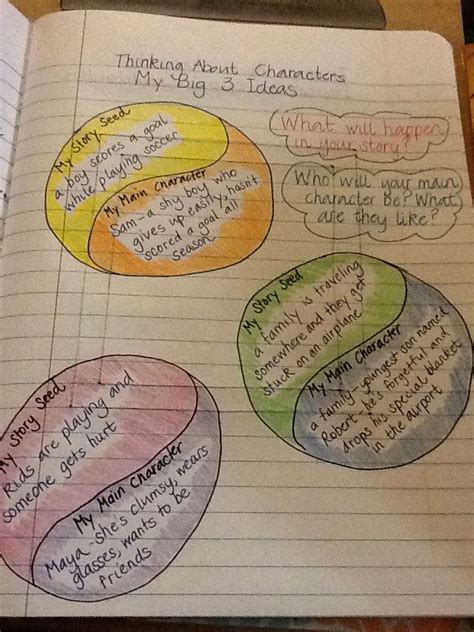 Thinking About Characters
My Big 3 Ideas
My Story Seed
a boy scores a goal
while playing soccer
My Main Character
Sam - a shy boy who
gives up easily, hasn't
scored a goal all
season
What will happen
in your story?
Who will your main
character be? What
are they like?
My Story Seed
a family is traveling
somewhere and they get
stuck on an airplane
My Main Character
a family - youngest son named
Robert, he's forgetful and
drops his special blanket
in the airport
My Story Seed
Kids are playing and
someone gets hurt
My Main Character
Maya - she's clumsy, wears
glasses, wants to be
friends